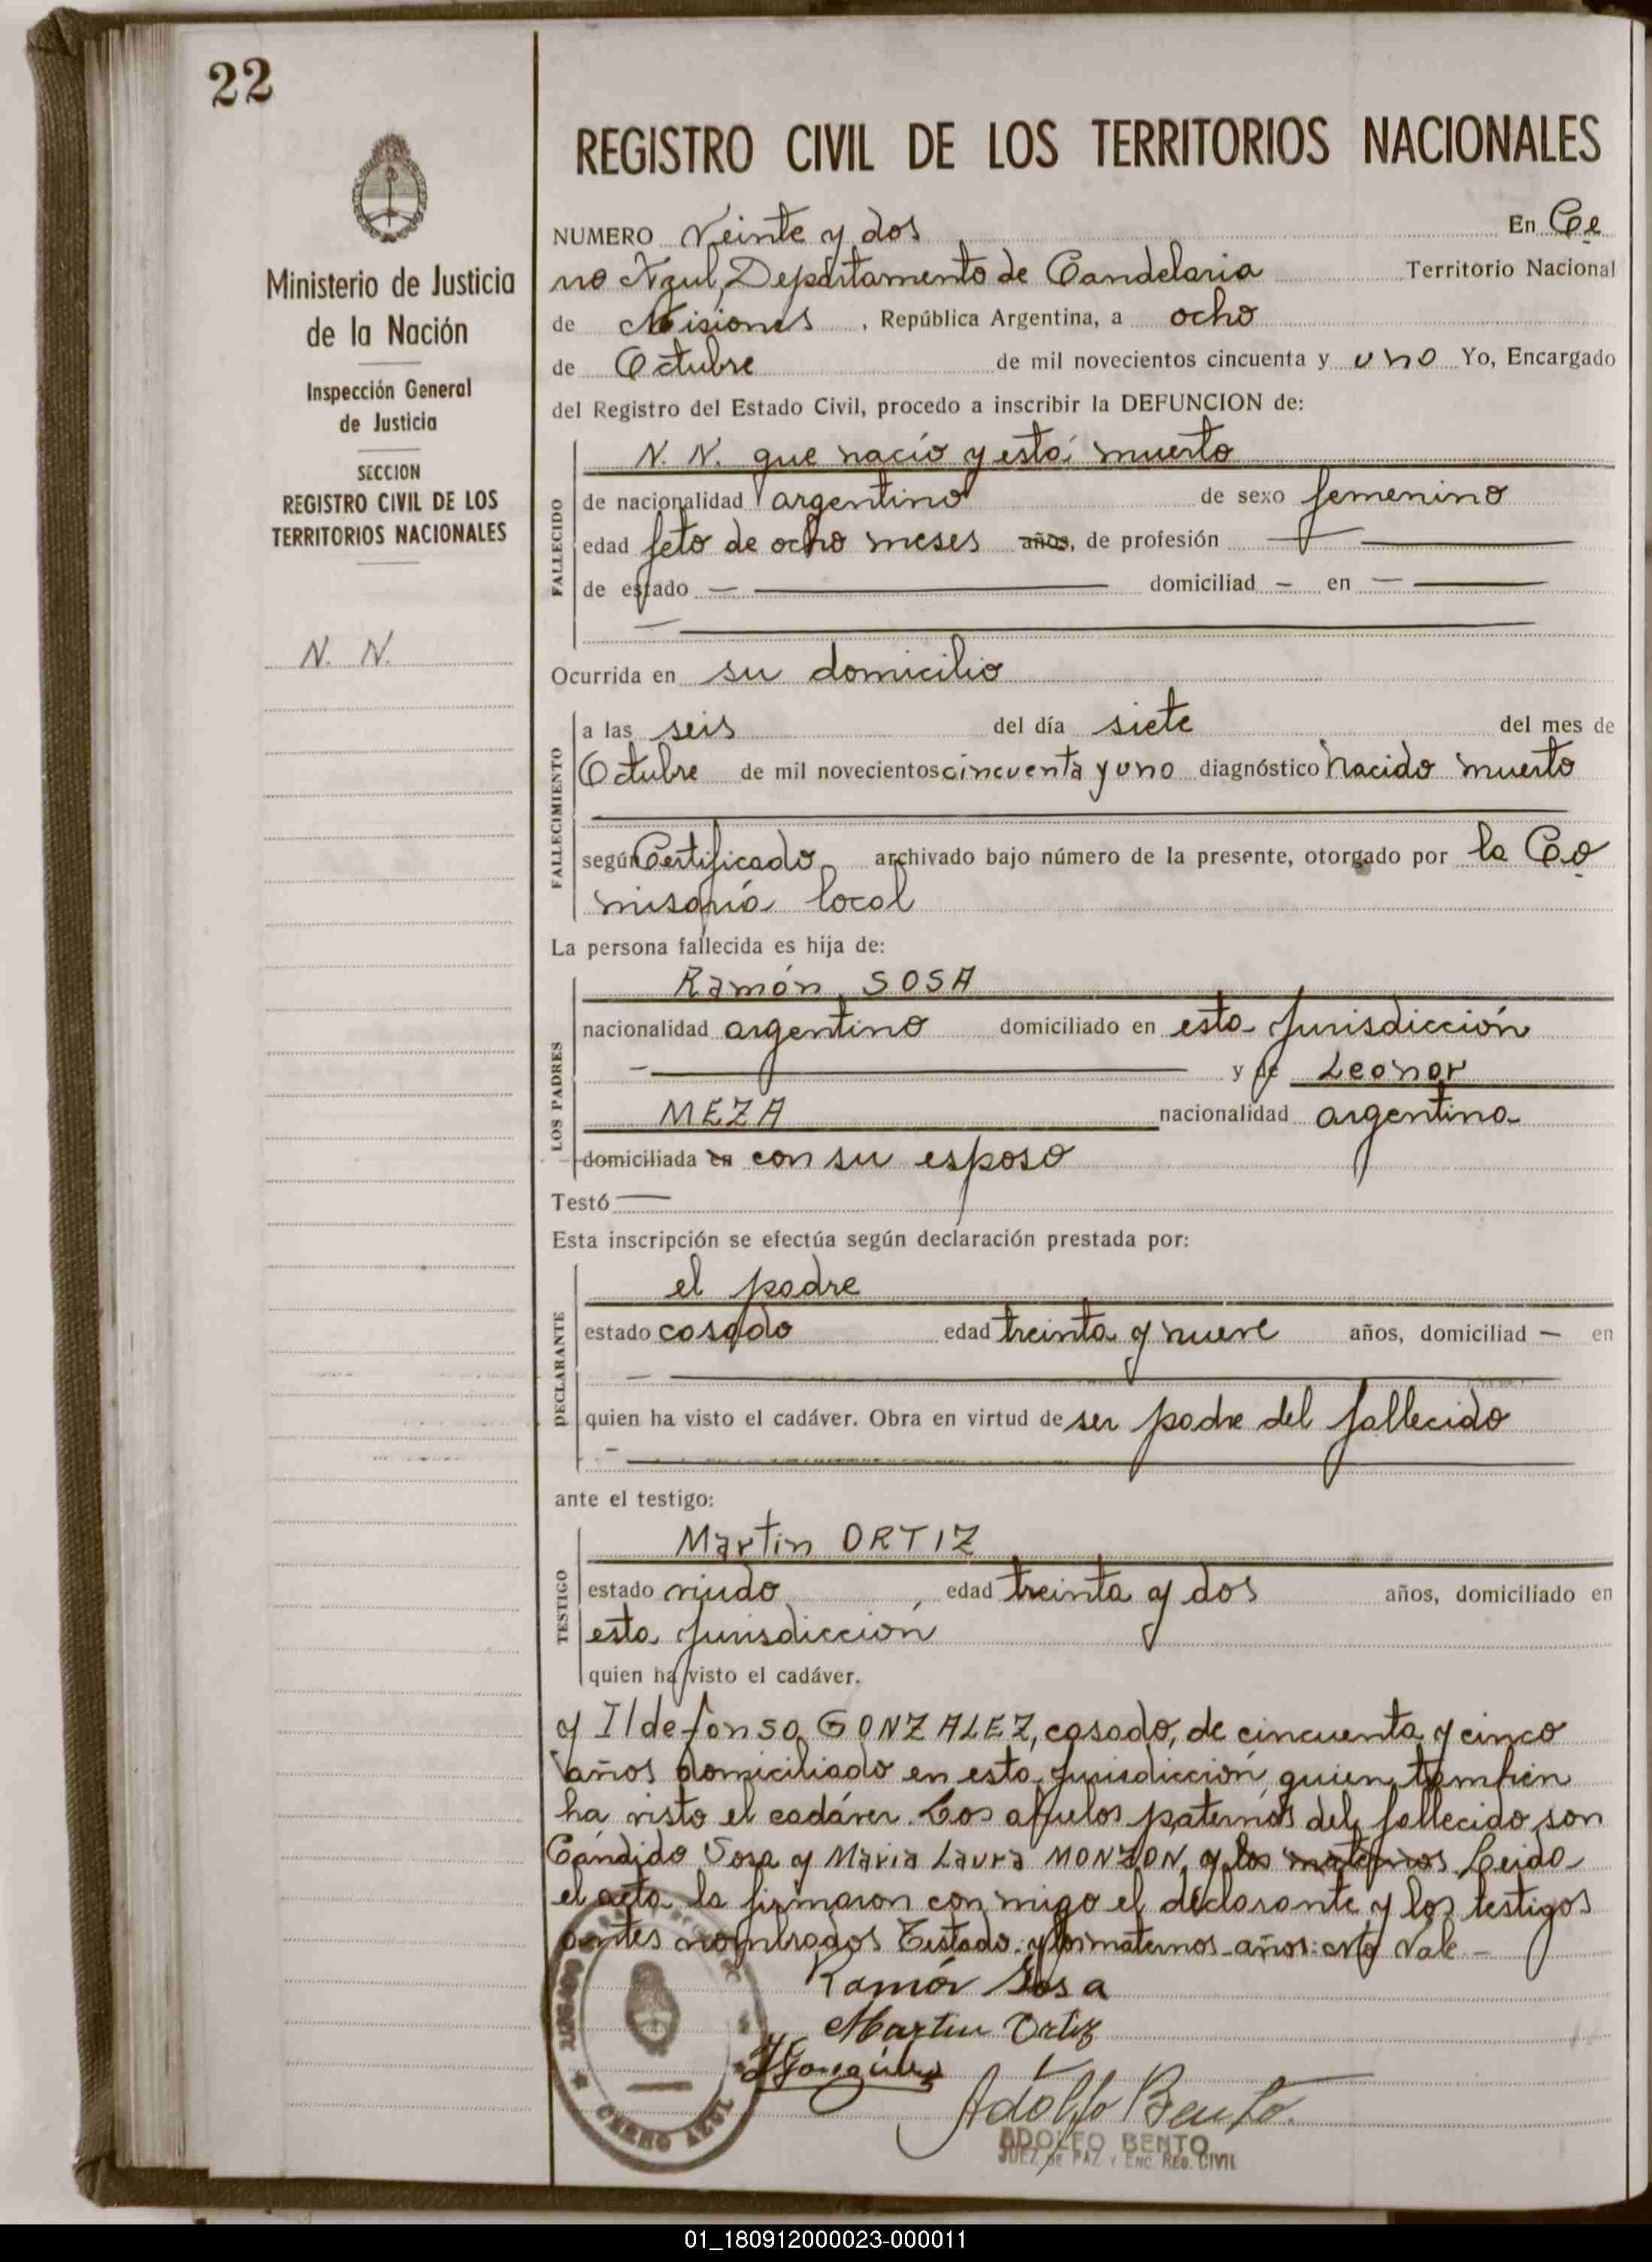 22
Ministerio de Justicia
de la Nación
Inspección General
de Justicia
SECCION
REGISTRO CIVIL DE LOS
TERRITORIOS NACIONALES
N. N.
REGISTRO CIVIL DE LOS TERRITORIOS NACIONALES
NUMERO Veinte y dos En Ce
rro Azul, Departamento de Candelaria Territorio Nacional
de Misiones, República Argentina, a ocho
de Octubre de mil novecientos cincuenta y uno Yo, Encargado
del Registro del Estado Civil, procedo a inscribir la DEFUNCION de:
FALLECIDO
N. N. que nació y está muerto
de nacionalidad argentino de sexo femenino
edad feto de ocho meses años, de profesión —
de estado — domiciliad — en —
Ocurrida en su domicilio
FALLECIMIENTO
a las seis del día siete del mes de
Octubre de mil novecientos cincuenta y uno diagnóstico nacido muerto
según Certificado archivado bajo número de la presente, otorgado por la Co
misaría local
La persona fallecida es hija de:
LOS PADRES
Ramón SOSA
nacionalidad argentino domiciliado en esta Jurisdicción
— y de Leonor
MEZA nacionalidad argentina
domiciliada en con su esposo
Testó —
Esta inscripción se efectúa según declaración prestada por:
DECLARANTE
el padre
estado casado edad treinta y nueve años, domiciliad — en
—
quien ha visto el cadáver. Obra en virtud de ser padre del fallecido
—
ante el testigo:
TESTIGO
Martin ORTIZ
estado viudo edad treinta y dos años, domiciliado en
esta Jurisdicción
quien ha visto el cadáver.
y Ildefonso GONZALEZ, casado, de cincuenta y cinco
años domiciliado en esta Jurisdicción quien tambien
ha visto el cadáver. Los abuelos paternos del fallecido son
Cándido Sosa y Maria Laura MONZON y los maternos Leida
el acta la firmaron con migo el declarante y los testigos
antes nombrados Testado: y los maternos - años: no Vale -
Ramón Sosa
Martin Ortiz
CERRO AZUL
Adolfo Bento.
ADOLFO BENTO
JUEZ DE PAZ Y ENC. REG. CIVIL
01_180912000023-000011